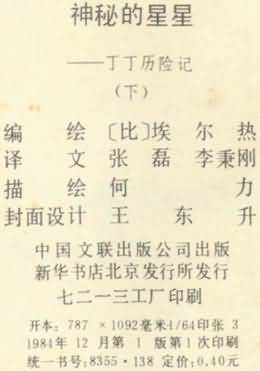 神秘的星星
——丁丁历险记
(下)
编 绘 〔比〕埃 尔 热
译 文 张 磊 李秉刚
描 绘 何 力
封面设计 王 东 升
中国文联出版公司出版
新华书店北京发行所发行
七二一三工厂印刷
开本: 787×1092毫米1/64印张 3
1984年 12月第 1 版第1次印刷
统一书号:8355·138 定价:0.40元